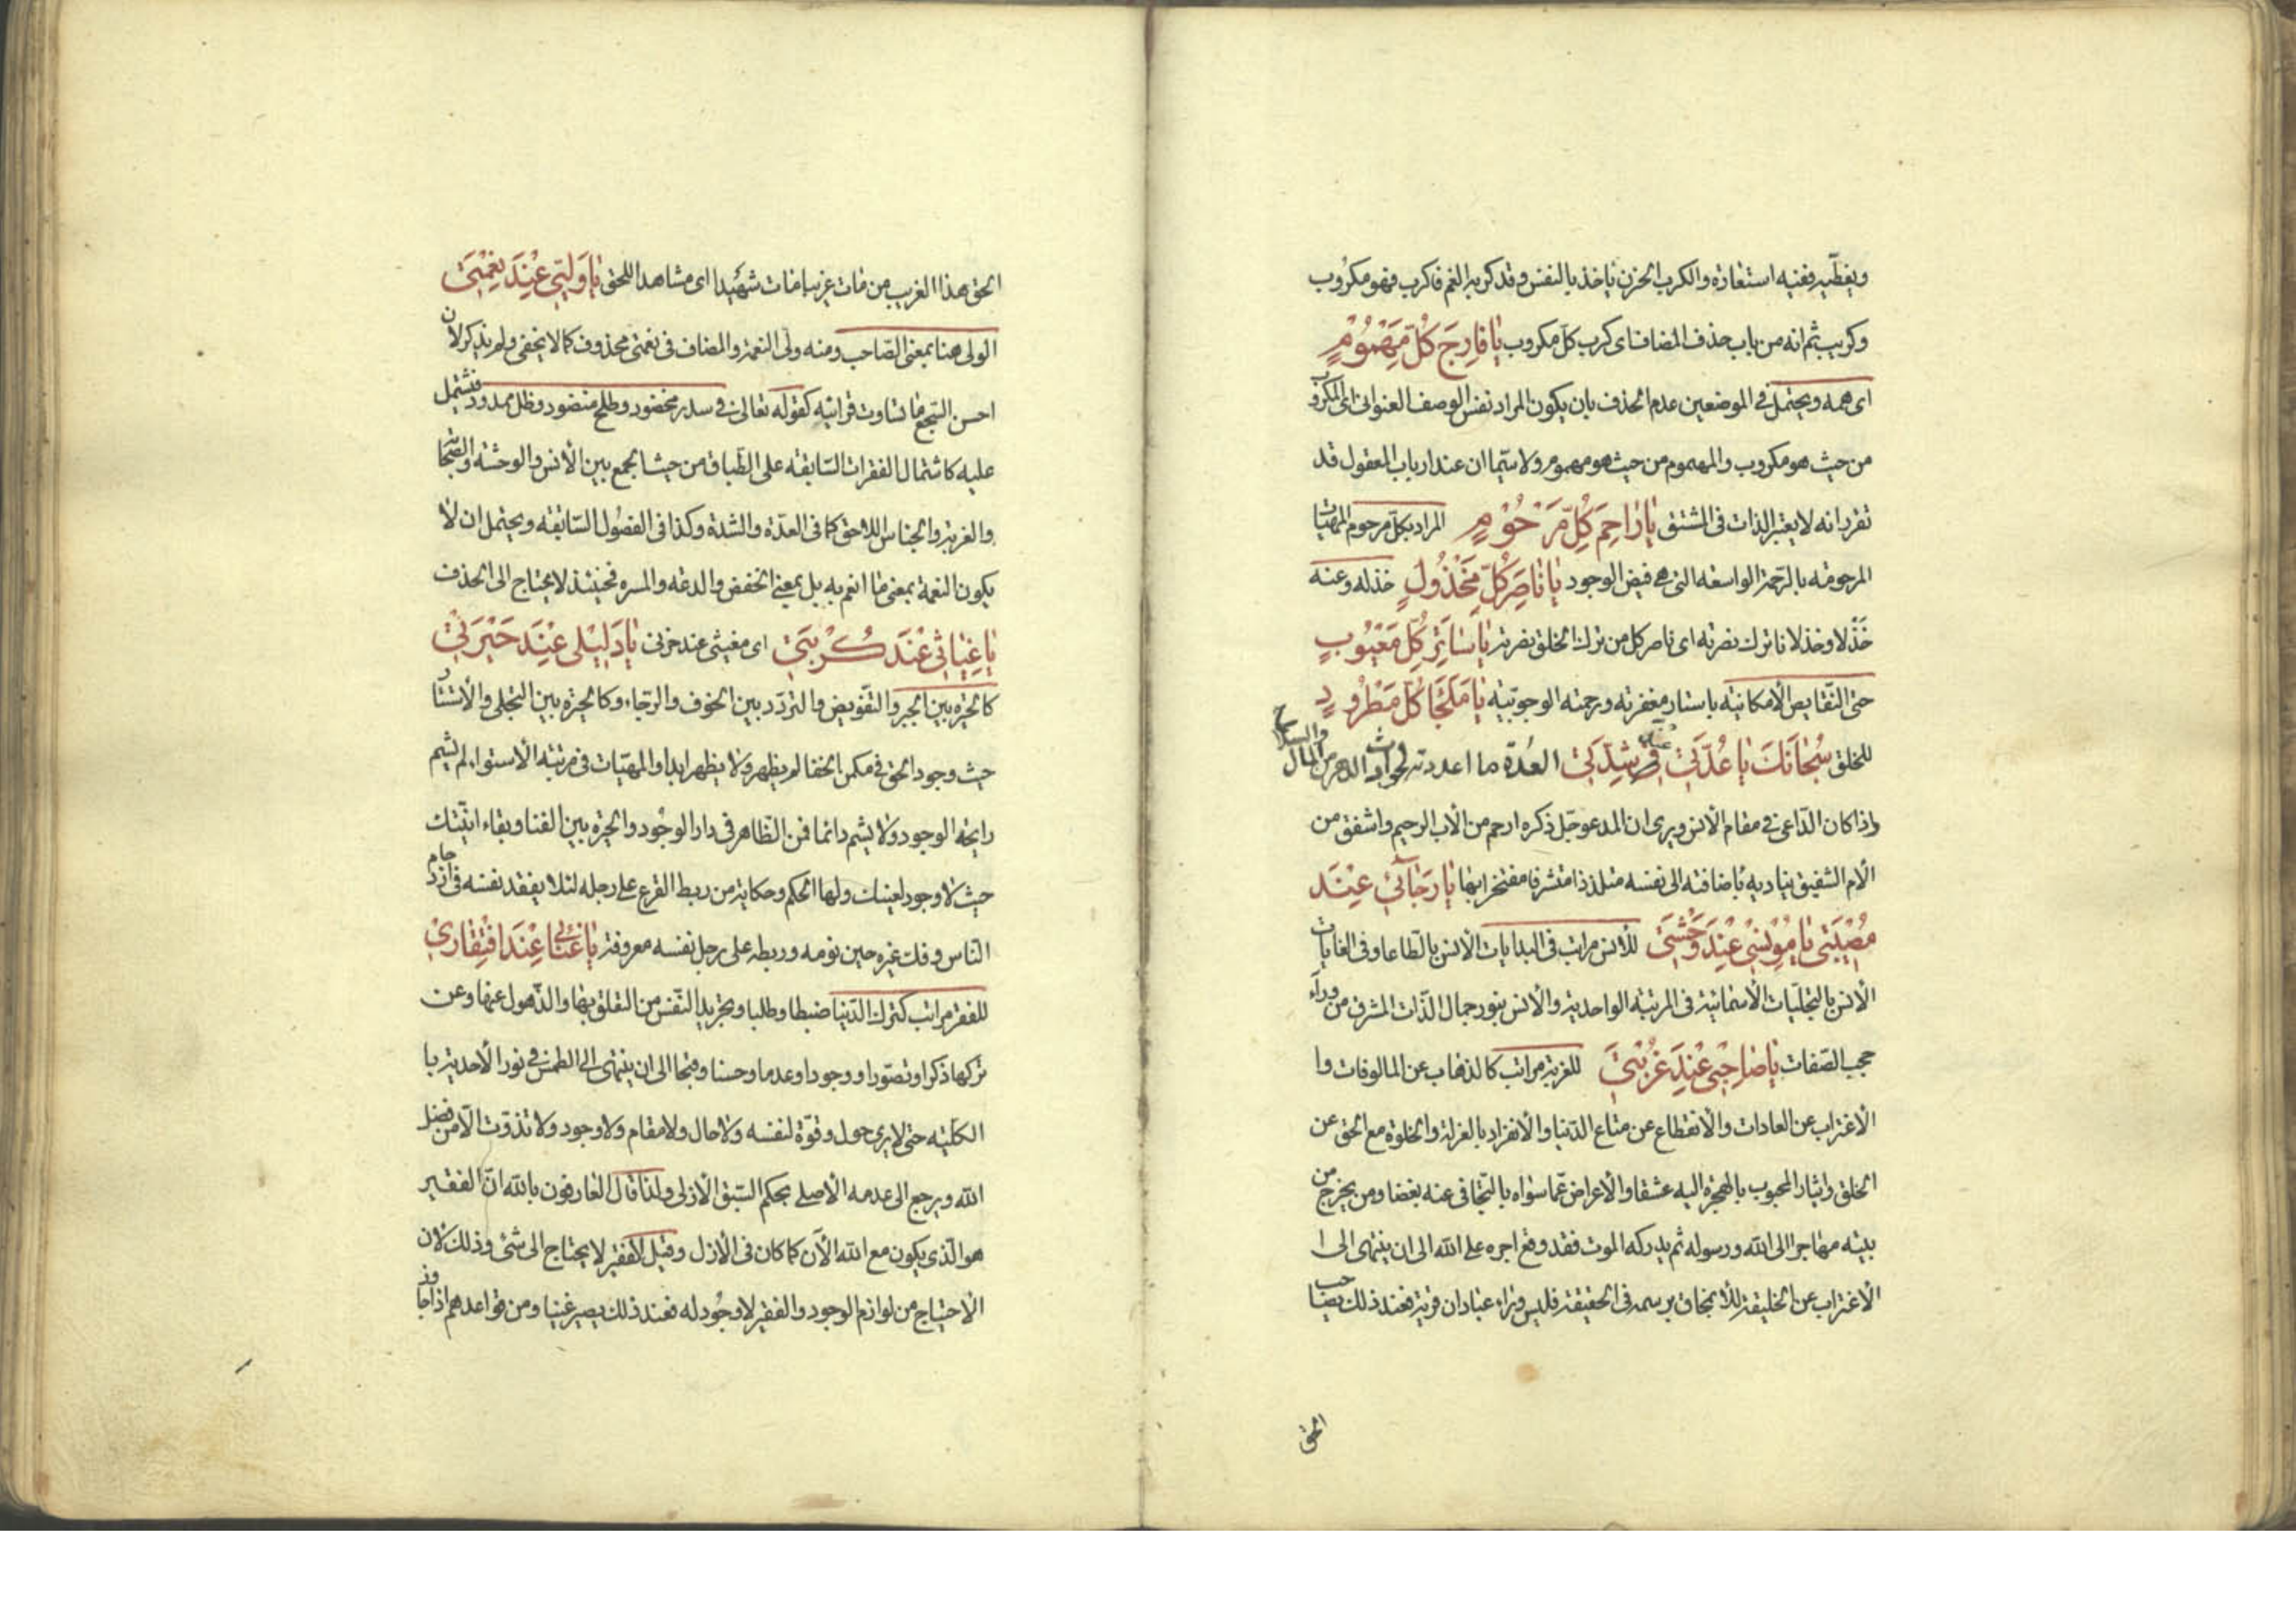 ويغطّيه ففيه استعارة والكرب الحزن ياخذ بالنفس وقد كربه الغم فاكرب فهو مكروب
وكريب ثم انه من باب حذف المضاف اى كرب كل مكروب يا فارج كل مهموم
اى همه ويحتمل فى الموضعين عدم الحذف بان يكون المراد نفس الوصف العنوانى اى المكروب
من حيث هو مكروب والمهموم من حيث هو مهموم ولا سيّما ان عند ارباب العقول قد
تقرر انه لا يعتبر الذات فى المشتق يا راحم كل مرحوم المراد بكل مرحوم المهيات
المرحومه بالرحمة الواسعه التى هى فيض الوجود يا ناصر كل مخذول خذله وعنه
خذلا وخذلانا ترك نصرته اى ناصر كل من ترك الخلق نصرته يا ساتر كل معيوب
حتى النّقايص الأمكانيّه باستار مغفرته ورحمته الوجوبيّه يا ملجأ كل مطرود
للخلق سبحانك يا عدّتى فى شدتى العدّة ما اعددته لحوادث الدهر من المال والسلاح
واذا كان الدّاعى فى مقام الأنس ويرى ان المدعو جل ذكره ارحم من الأب الرحيم واشفق من
الأم الشفيق يناديه باضافته الى نفسه متلذذا متشرفا مفتخرا بها يا رجائى عند
مصيبتى يا مونسى عند وحشتى للأنس مراتب فى البدايات الأنس بالطاعات وفى الغايات
الأنس بالتجليّات الأسمائية فى المرتبه الواحدية والأنس بنور جمال الذّات المشرق من ورآء
حجب الصّفات يا صاحبى عند غربتى للغربة مراتب كالذهاب عن المالوفات وا
الأغتراب عن العادات والأنقطاع عن متاع الدّنيا والأنفراد بالعزلة والخلوة مع الحق عن
الخلق وايثار المحبوب بالهجرة اليه عشقا والأعراض عمّا سواه بالتجافى عنه بغضا ومن يخرج من
بيته مهاجرا الى الله ورسوله ثم يدركه الموت فقد وقع اجره على الله الى ان ينتهى الى ا
الأغتراب عن الخليقة للأنمحاق برسمه فى الحقيقة فليس وراء عبادان قرية فعند ذلك يصاحب
الحق
الحق هذا الغريب من مات غريبا مات شهيدا اى مشاهدا للحق يا وليى عند نعمتى
الولى هنا بمعنى الصّاحب ومنه ولى النعمة والمضاف فى نعمتى محذوف كما لا يخفى ولم يذكر لأن
احسن السّجع ما تساوت قرائنه كقوله تعالى فى سدر مخضود وطلح منضود وظل ممدود فتشتمل
عليه كاشتمال الفقرات السّابقه على الطّباق من حيث الجمع بين الأنس والوحشة والصّحابة
والغربة والجناس اللاحق كما فى العدّة والشدة وكذا فى الفصول السّابقه ويحتمل ان لا
يكون النعمة بمعنى ما انعم به بل بمعنى الخفض والدعه والمسره فحينئذ لا يحتاج الى الحذف
يا غياثى عند كربتى اى مغيثى عند حزنى يا دليلى عند حيرتى
كالحيرة بين الجبر والتفويض والتردّد بين الخوف والرّجاء وكالحيرة بين التجلى والأستتار
حيث وجود الحق فى مكمن الخفا لم يظهر ولا يظهر ابدا والمهيّات فى مرتبة الاستواء لم تشم
رايحة الوجود ولا يشم دائما فمن الظاهر فى دار الوجود والحيرة بين الفنا وبقاء انيّتك
حيث لا وجود لعينك ولها الحكم وحكاية من ربط القرع على رجله لئلا يفقد نفسه فى ازدحام
النّاس وفك غيره حين نومه وربطه على رجل نفسه معروفة يا غنائى عند افتقارى
للفقر مراتب كترك الدّنيا ضبطا وطلبا وتجريد النّفس من التعلق بها والذّهول عنها وعن
تركها ذكرا وتصوّرا ووجودا وعدما وحسنا وقبحا الى ان ينتهى الى الطمس فى نور الأحدية با
الكليّه حتى لا يرى حول وقوّة لنفسه ولا حال ولا مقام ولا وجود ولا تذوّت الّا من فضل
الله ويرجع الى عدمه الأصلى بحكم السّبق الأزلى ولذا قال العارفون بالله انّ الفقير
هو الّذى يكون مع الله الأن كما كان فى الأزل وقيل الفقير لا يحتاج الى شئ وذلك لأن
الاحتياج من لوازم الوجود والفقير لا وجود له فعند ذلك يصير غنيا ومن قواعدهم اذا جاوز